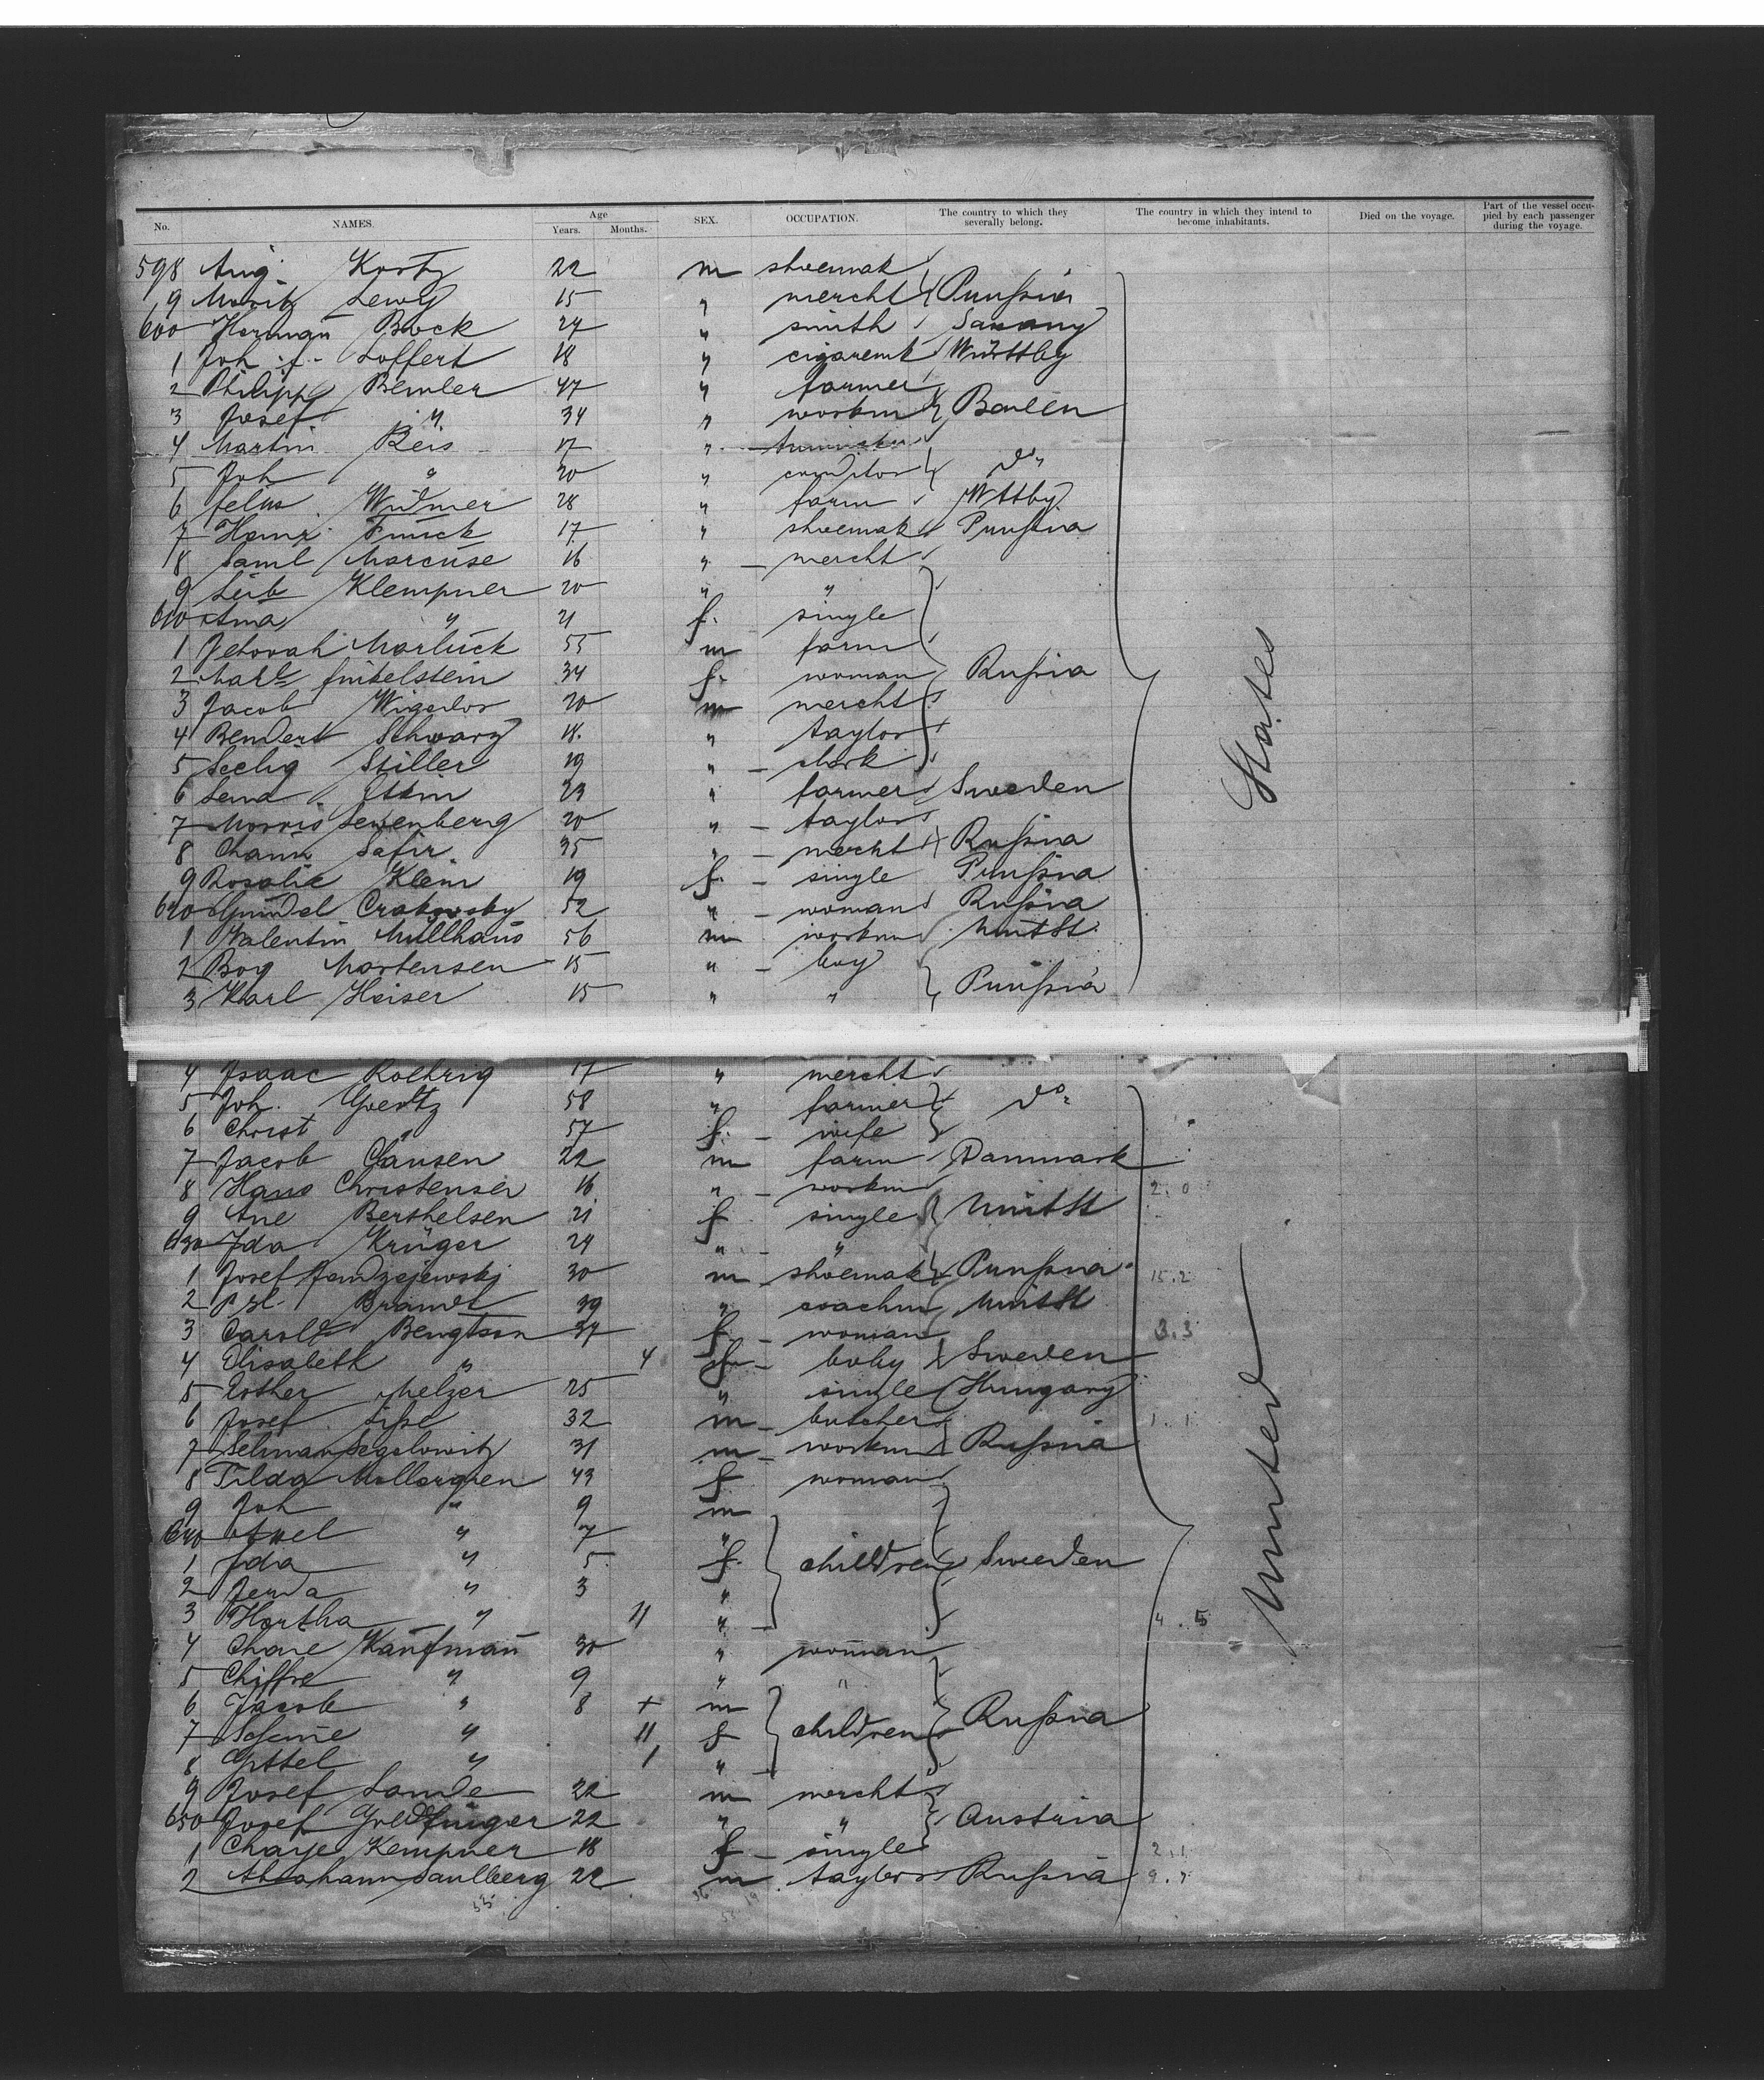 No. NAMES. Age Years. Months. SEX. OCCUPATION. The country to which they severally belong. The country in which they intend to become inhabitants. Died on the voyage. Part of the vessel occupied by each passenger during the voyage.
598 Aug. 22 m shoemak
9 Moritz Lewy 15 " mercht Prussia
600 Herman Bock 24 " smith Saxony
1 Joh. Loffert 18 " cigaremk Württby
2 Philipp Bemler 47 " farmer
3 Josef " 34 " workm Baden
4 Martin Reis 17 "
5 Joh " 20 " conditor do
6 Widmer 28 " farm Wttby
7 17 " shoemak Prussia
8 Saml Marcuse 16 " mercht
9 Leib Klempner 20 " "
610 Ama " 21 f. single
1 Jehovah Marluck 55 m farm
2 finkelstein 34 f. woman Russia
3 Jacob 20 m mercht
4 Schwarz 18. " taylor
5 Seelig Stiller 19 " clerk
6 23 " farmer Sweden
7 Morris Lewenberg 20 " taylor
8 Chaim Safir 35 " mercht Russia
9 Rosalie Klein 19 f. single Prussia
620 52 " woman Russia
1 Valentin Müllhaus 56 m workm UnitSt
2 Boy Martensen 15 " boy
3 Karl Heiser 15 " " Prussia
4 Isaac Roehrig 17 " mercht
5 Joh. Goertz 58 " farmer do
6 Christ " 57 f. wife
7 Jacob Clausen 22 m farm Danmark
8 Hans Christensen 16 " workm
9 Ane Berthelsen 21 f single UnitSt
630 Ida Krüger 24 " "
1 Josef Jendzejewski 30 m shoemak Prussia
2 Brandt 39 " coachm UnitSt
3 Bengtson 37 f woman
4 Elisabeth " 4 f baby Sweden
5 Esther Melzer 25 " single Hungary
6 Josef 32 m butcher
7 Selman Segolowitz 31 m workm Russia
8 Tilda Mollorgren 43 f woman
9 Joh " 9 m
640 Axel " 7 "
1 Ida " 5 f. children Sweden
2 Jerda " 3 "
3 Hertha " 11 "
4 Kaufman 30 " woman
5 Chiffre " 9 " "
6 Jacob " 8 + m
7 " 11 f children Russia
8 Gittel " 1 "
9 Josef Lande 22 m mercht
650 Josef Goldfinger 22 " " Austria
1 Chaye Kempner 18 f single
2 Abraham Saulberg 22 m taylor Russia
United States